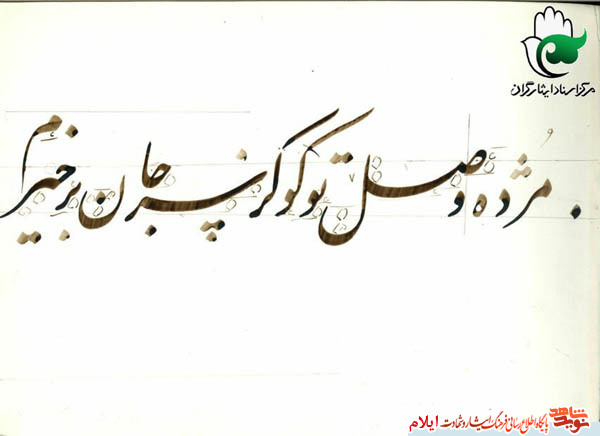 مرکز اسناد ایثارگران
مژده وصل تو کو کز سر جان برخیزم
نوید شاهد پایگاه اطلاع رسانی فرهنگ ایثار و شهادت ایلام